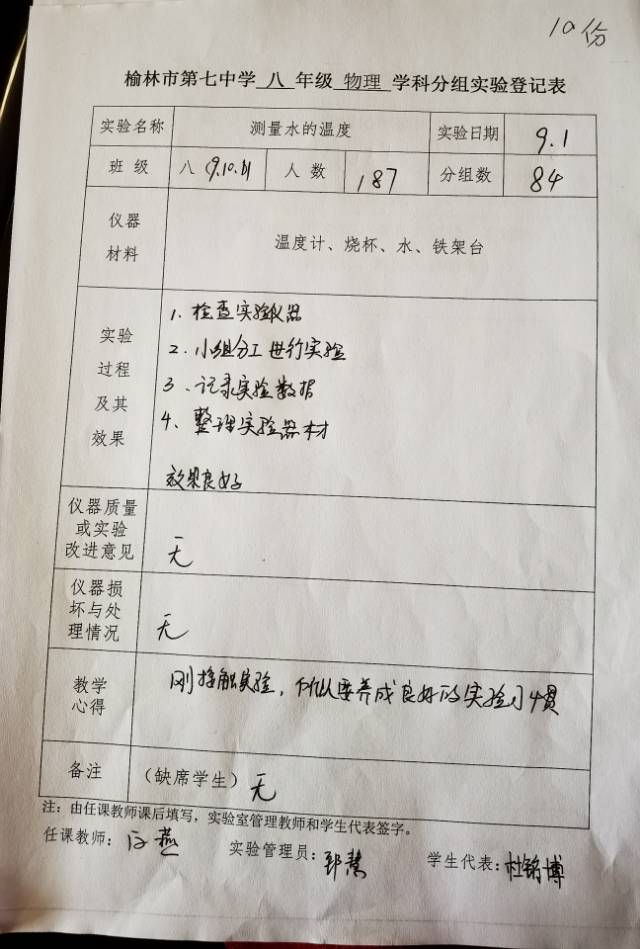 10份
榆林市第七中学 八 年级 物理 学科分组实验登记表
实验名称 测量水的温度 实验日期 9.1
班 级 八(9.10.11) 人 数 187 分组数 84
仪器
材料
温度计、烧杯、水、铁架台
实验
过程
及其
效果
1、检查实验仪器
2、小组分工进行实验
3、记录实验数据
4、整理实验器材
效果良好
仪器质量
或实验
改进意见
无
仪器损
坏与处
理情况
无
教学
心得
刚接触实验，所以要养成良好的实验习惯
备注 (缺席学生) 无
注：由任课教师课后填写，实验室管理教师和学生代表签字。
任课教师： 燕
实验管理员： 慧
学生代表：杜铭博